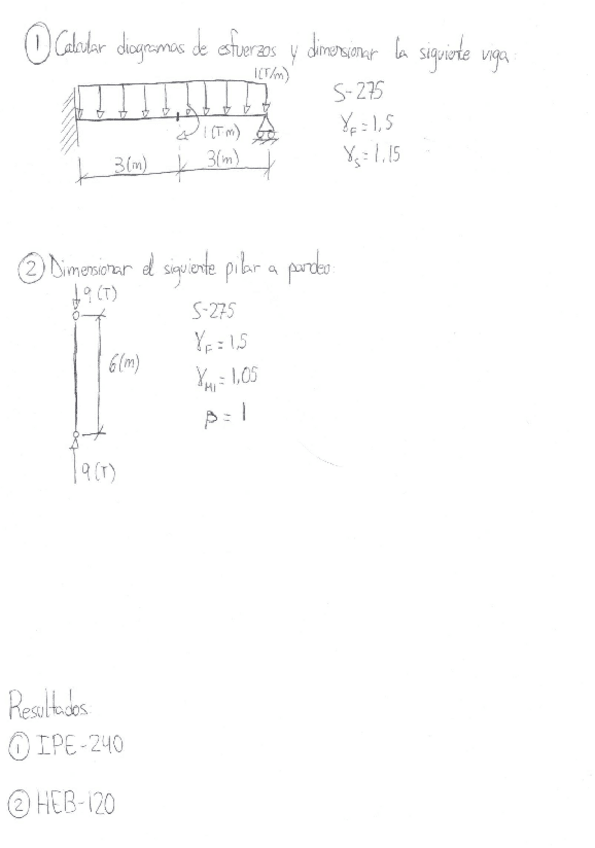 ① Calcular diagramas de esfuerzos y dimensionar la siguiente viga:
1(T/m)
S-275
1(T·m)
γF = 1,5
3(m) 3(m)
γS = 1,15
② Dimensionar el siguiente pilar a pandeo:
9(T)
S-275
γF = 1,5
6(m)
γM1 = 1,05
β = 1
9(T)
Resultados:
① IPE-240
② HEB-120